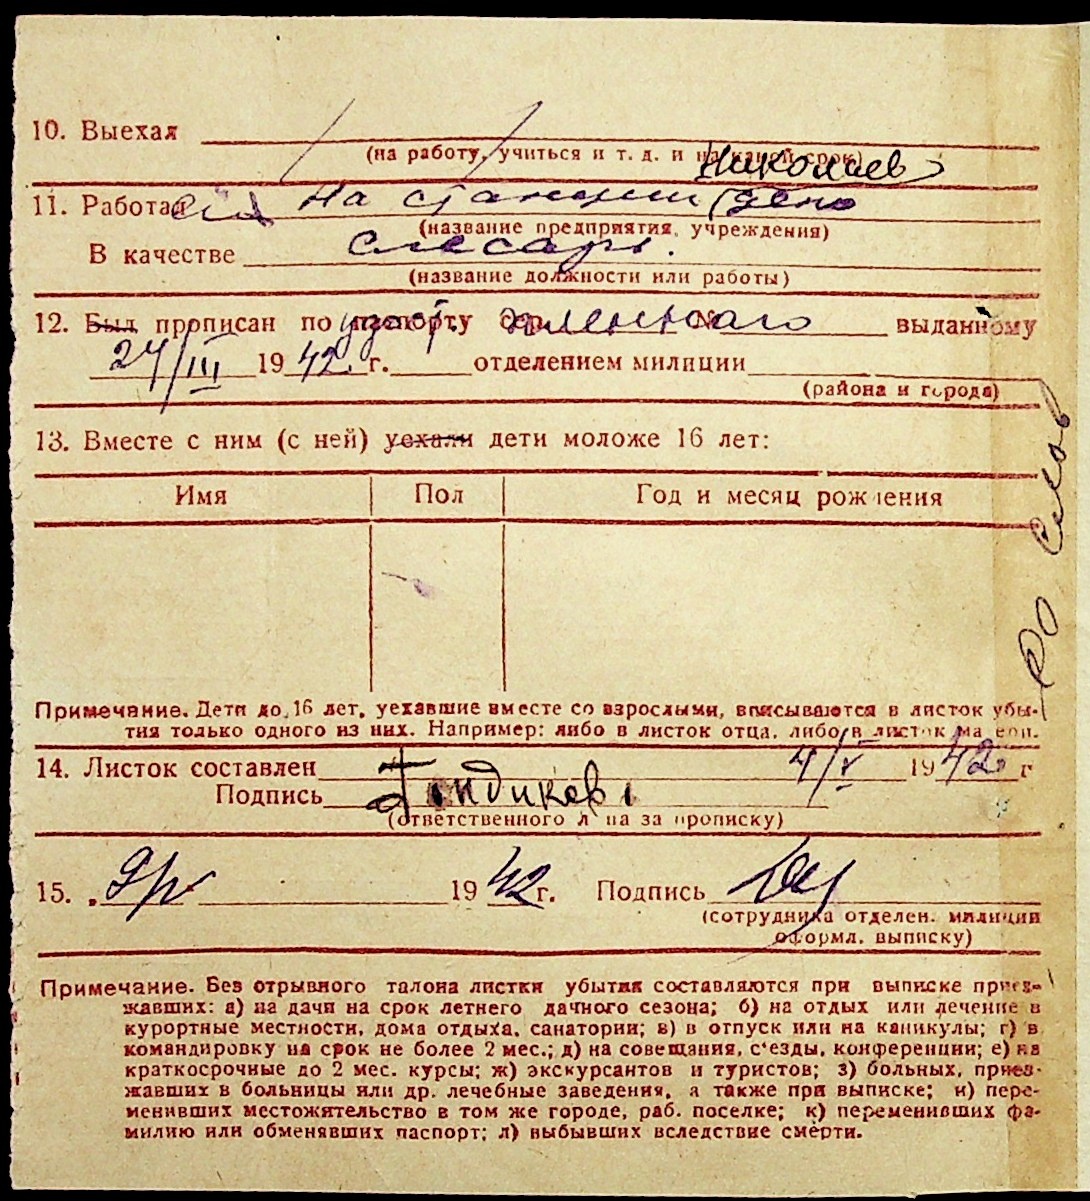 10. Выехал
(на работу, учиться и т. д. и на какой срок)
Николаев
11. Работал на станции депо
(название предприятия, учреждения)
В качестве слесарь.
(название должности или работы)
12. Был прописан по паспорту № выданному
24/III 1942 г. отделением милиции
(района и города)
13. Вместе с ним (с ней) уехали дети моложе 16 лет:
Имя Пол Год и месяц рождения
Примечание. Дети до 16 лет, уехавшие вместе со взрослыми, вписываются в листок убы-
тия только одного из них. Например: либо в листок отца, либо в листок матери.
14. Листок составлен 4/V 1942 г
Подпись
(ответственного лица за прописку)
15. 1942 г. Подпись
(сотрудника отделен. милиции
оформл. выписку)
Примечание. Без отрывного талона листки убытия составляются при выписке приез-
жавших: а) на дачи на срок летнего дачного сезона; б) на отдых или лечение в
курортные местности, дома отдыха, санатории; в) в отпуск или на каникулы; г) в
командировку на срок не более 2 мес.; д) на совещания, с'езды, конференции; е) на
краткосрочные до 2 мес. курсы; ж) экскурсантов и туристов; з) больных, приез-
жавших в больницы или др. лечебные заведения, а также при выписке; и) пере-
менивших местожительство в том же городе, раб. поселке; к) переменивших фа-
милию или обменявших паспорт; л) выбывших вследствие смерти.